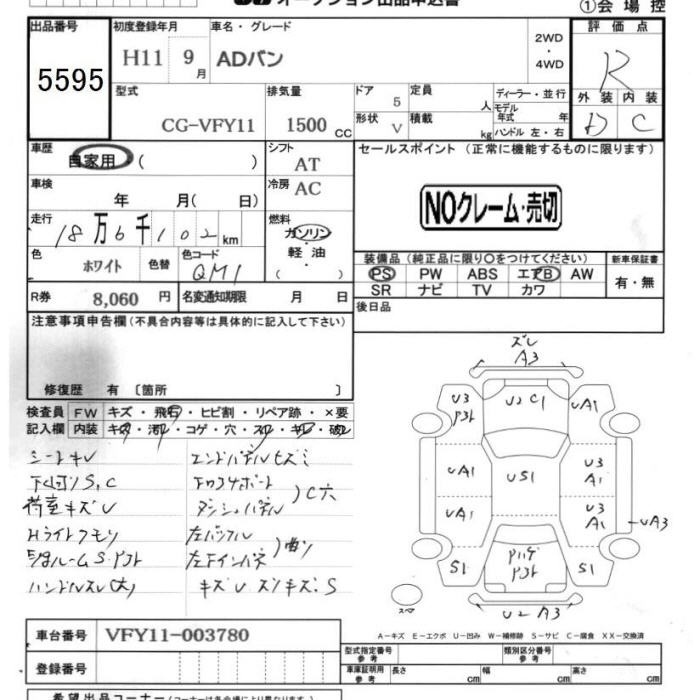 オークション出品申込書
①会場控
出品番号 初度登録年月 車名・グレード 評価点
5595 H11 9月 ADバン 2WD・4WD R
型式 排気量 ドア 5 定員 人 ディーラー・並行 外装 内装
CG-VFY11 1500 CC 形状 V 積載 kg モデル年式 年 ハンドル 左・右 D C
車歴 自家用 ( ) シフト AT セールスポイント (正常に機能するものに限ります)
車検 年 月( 日) 冷房 AC
NOクレーム・売切
走行 18万6千102km 燃料 ガソリン
軽油
( )
色 ホワイト 色替 色コード QM1
装備品 (純正品に限り○をつけてください) 新車保証書
PS PW ABS エアB AW 有・無
SR ナビ TV カワ
R券 8,060円 名変通知期限 月 日
後日品
注意事項申告欄 (不具合内容等は具体的に記入して下さい)
修復歴 有 〔箇所 〕
検査員 FW キズ・飛石・ヒビ割・リペア跡・×要
記入欄 内装 キズ・汚・コゲ・穴・スレ・キレ・破
シートキレ
下回り S, C
荷室キズU
Hライトクモリ
ハンドルスレ(大)
エンドパネルヒズミ
下ロアサポート
ダッシュパネル
)C穴
)曲り
キズU スリキズ、S
ズレ
A3
U3
U2 C1
UA1
UA1
US1
U3
A1
UA1
U3
A1
UA3
S1
S1
スペア
U2 A3
A-キズ E-エクボ U-凹み W-補修跡 S-サビ C-腐食 XX-交換済
車台番号 VFY11-003780
登録番号
型式指定番号 参考 類別区分番号 参考
車庫証明用 参考 長さ cm 幅 cm 高さ cm
希望出品コーナー